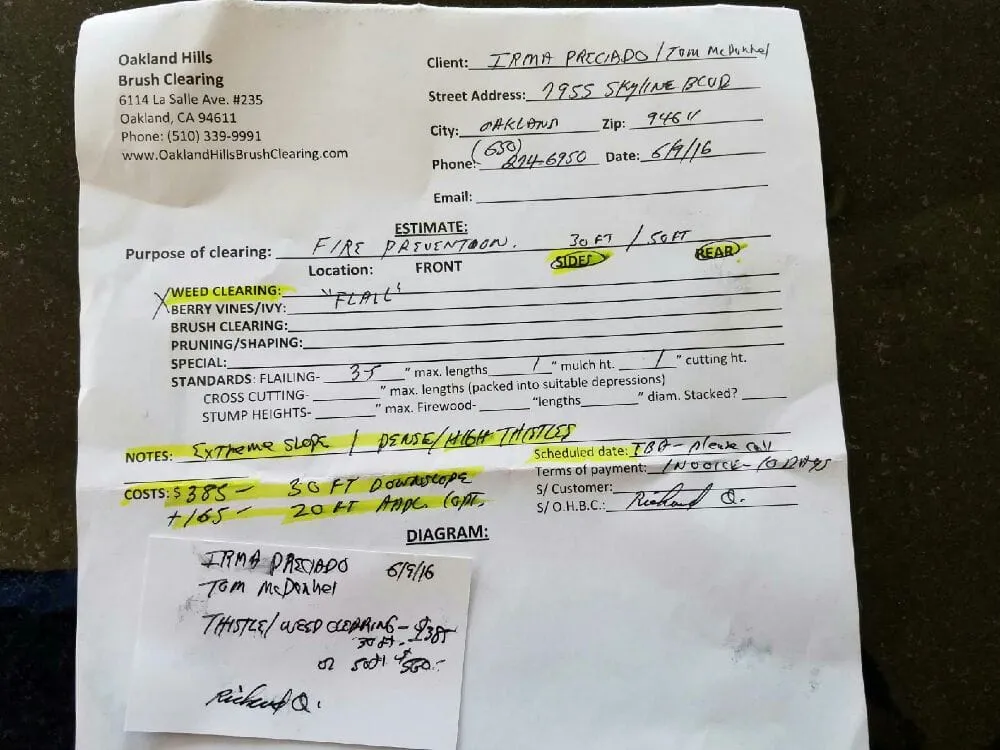 Oakland Hills
Brush Clearing
6114 La Salle Ave. #235
Oakland, CA 94611
Phone: (510) 339-9991
www.OaklandHillsBrushClearing.com
Client: IRMA PRECIADO / Tom McDonhel
Street Address: 7955 SKYLINE BLVD
City: OAKLAND Zip:
Phone: (650) 274-6950 Date: 6/9/16
Email:
ESTIMATE:
Purpose of clearing: FIRE PREVENTOON. 30 FT / 50 FT
Location: FRONT SIDES REAR
X WEED CLEARING: "FLAIL"
BERRY VINES/IVY:
BRUSH CLEARING:
PRUNING/SHAPING:
SPECIAL:
STANDARDS: FLAILING- 3-5 " max. lengths 1 " mulch ht. 1 " cutting ht.
CROSS CUTTING- " max. lengths (packed into suitable depressions)
STUMP HEIGHTS- " max. Firewood- "lengths " diam. Stacked?
NOTES: Extreme Slope / DENSE/HIGH THISTLES
Scheduled date: TBA - Please call
Terms of payment: INVOICE - 10 DAYS
COSTS: $ 385- 30 FT DOWNSLOPE
+165- 20 FT ADDL. (OPT.
S/ Customer:
S/ O.H.B.C.: Richard Q.
DIAGRAM:
IRMA PRECIADO 6/9/16
Tom McDonhel
THISTLE/WEED CLEARING-
30 ft. - $385-
or 50 ft $550.-
Richard Q.